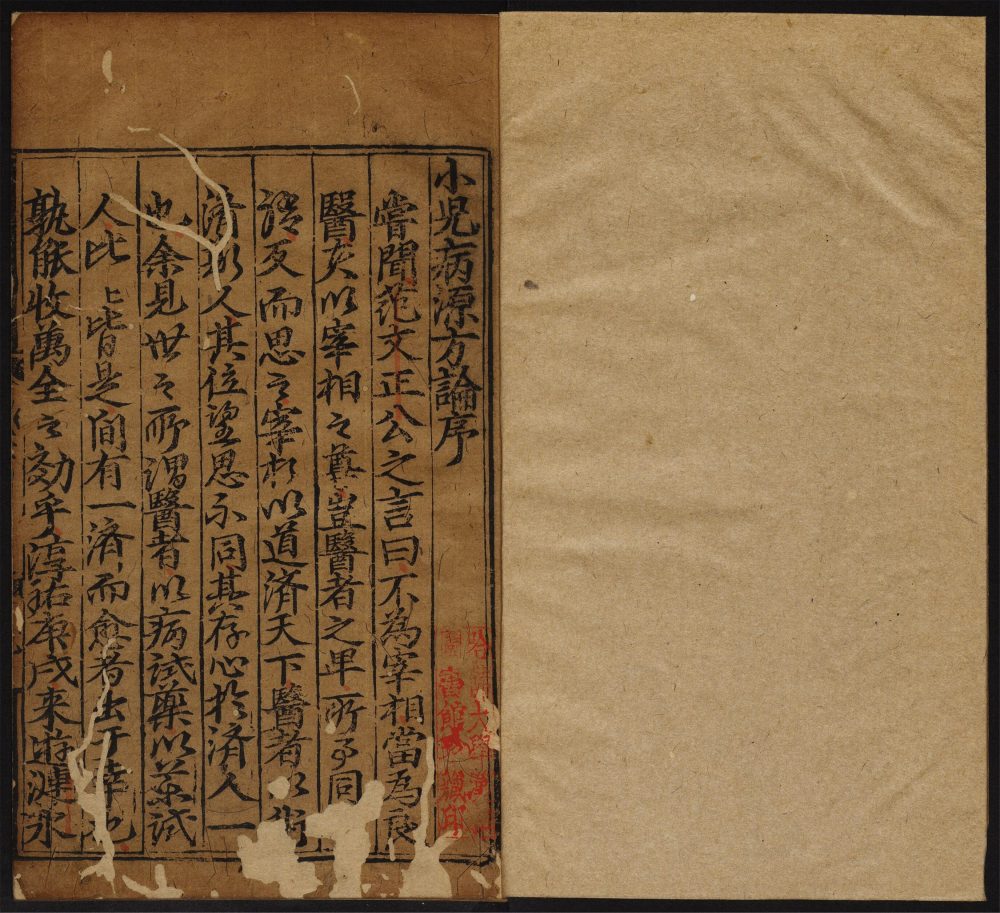 小児病源方論序
嘗聞范文正公之言曰不為宰相當為良
醫夫以宰相之尊豈醫者之卑所可同
語反而思之宰相以道済天下醫者以術
濟斯人其位望思不同其存心於済人一
也余見世之所謂醫者以病試藥以藥試
人比〻皆是間有一濟而愈者出于幸也
孰能收萬全之効乎淳祐庚戌来遊漣水
大學
書館
藏印